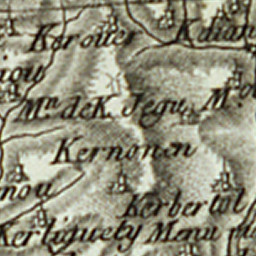 Kerouer
Kdian
iou
Mn. de K. Jegu
M.
Kernonen
nou
Kerbertol
Kerliguety
Manu